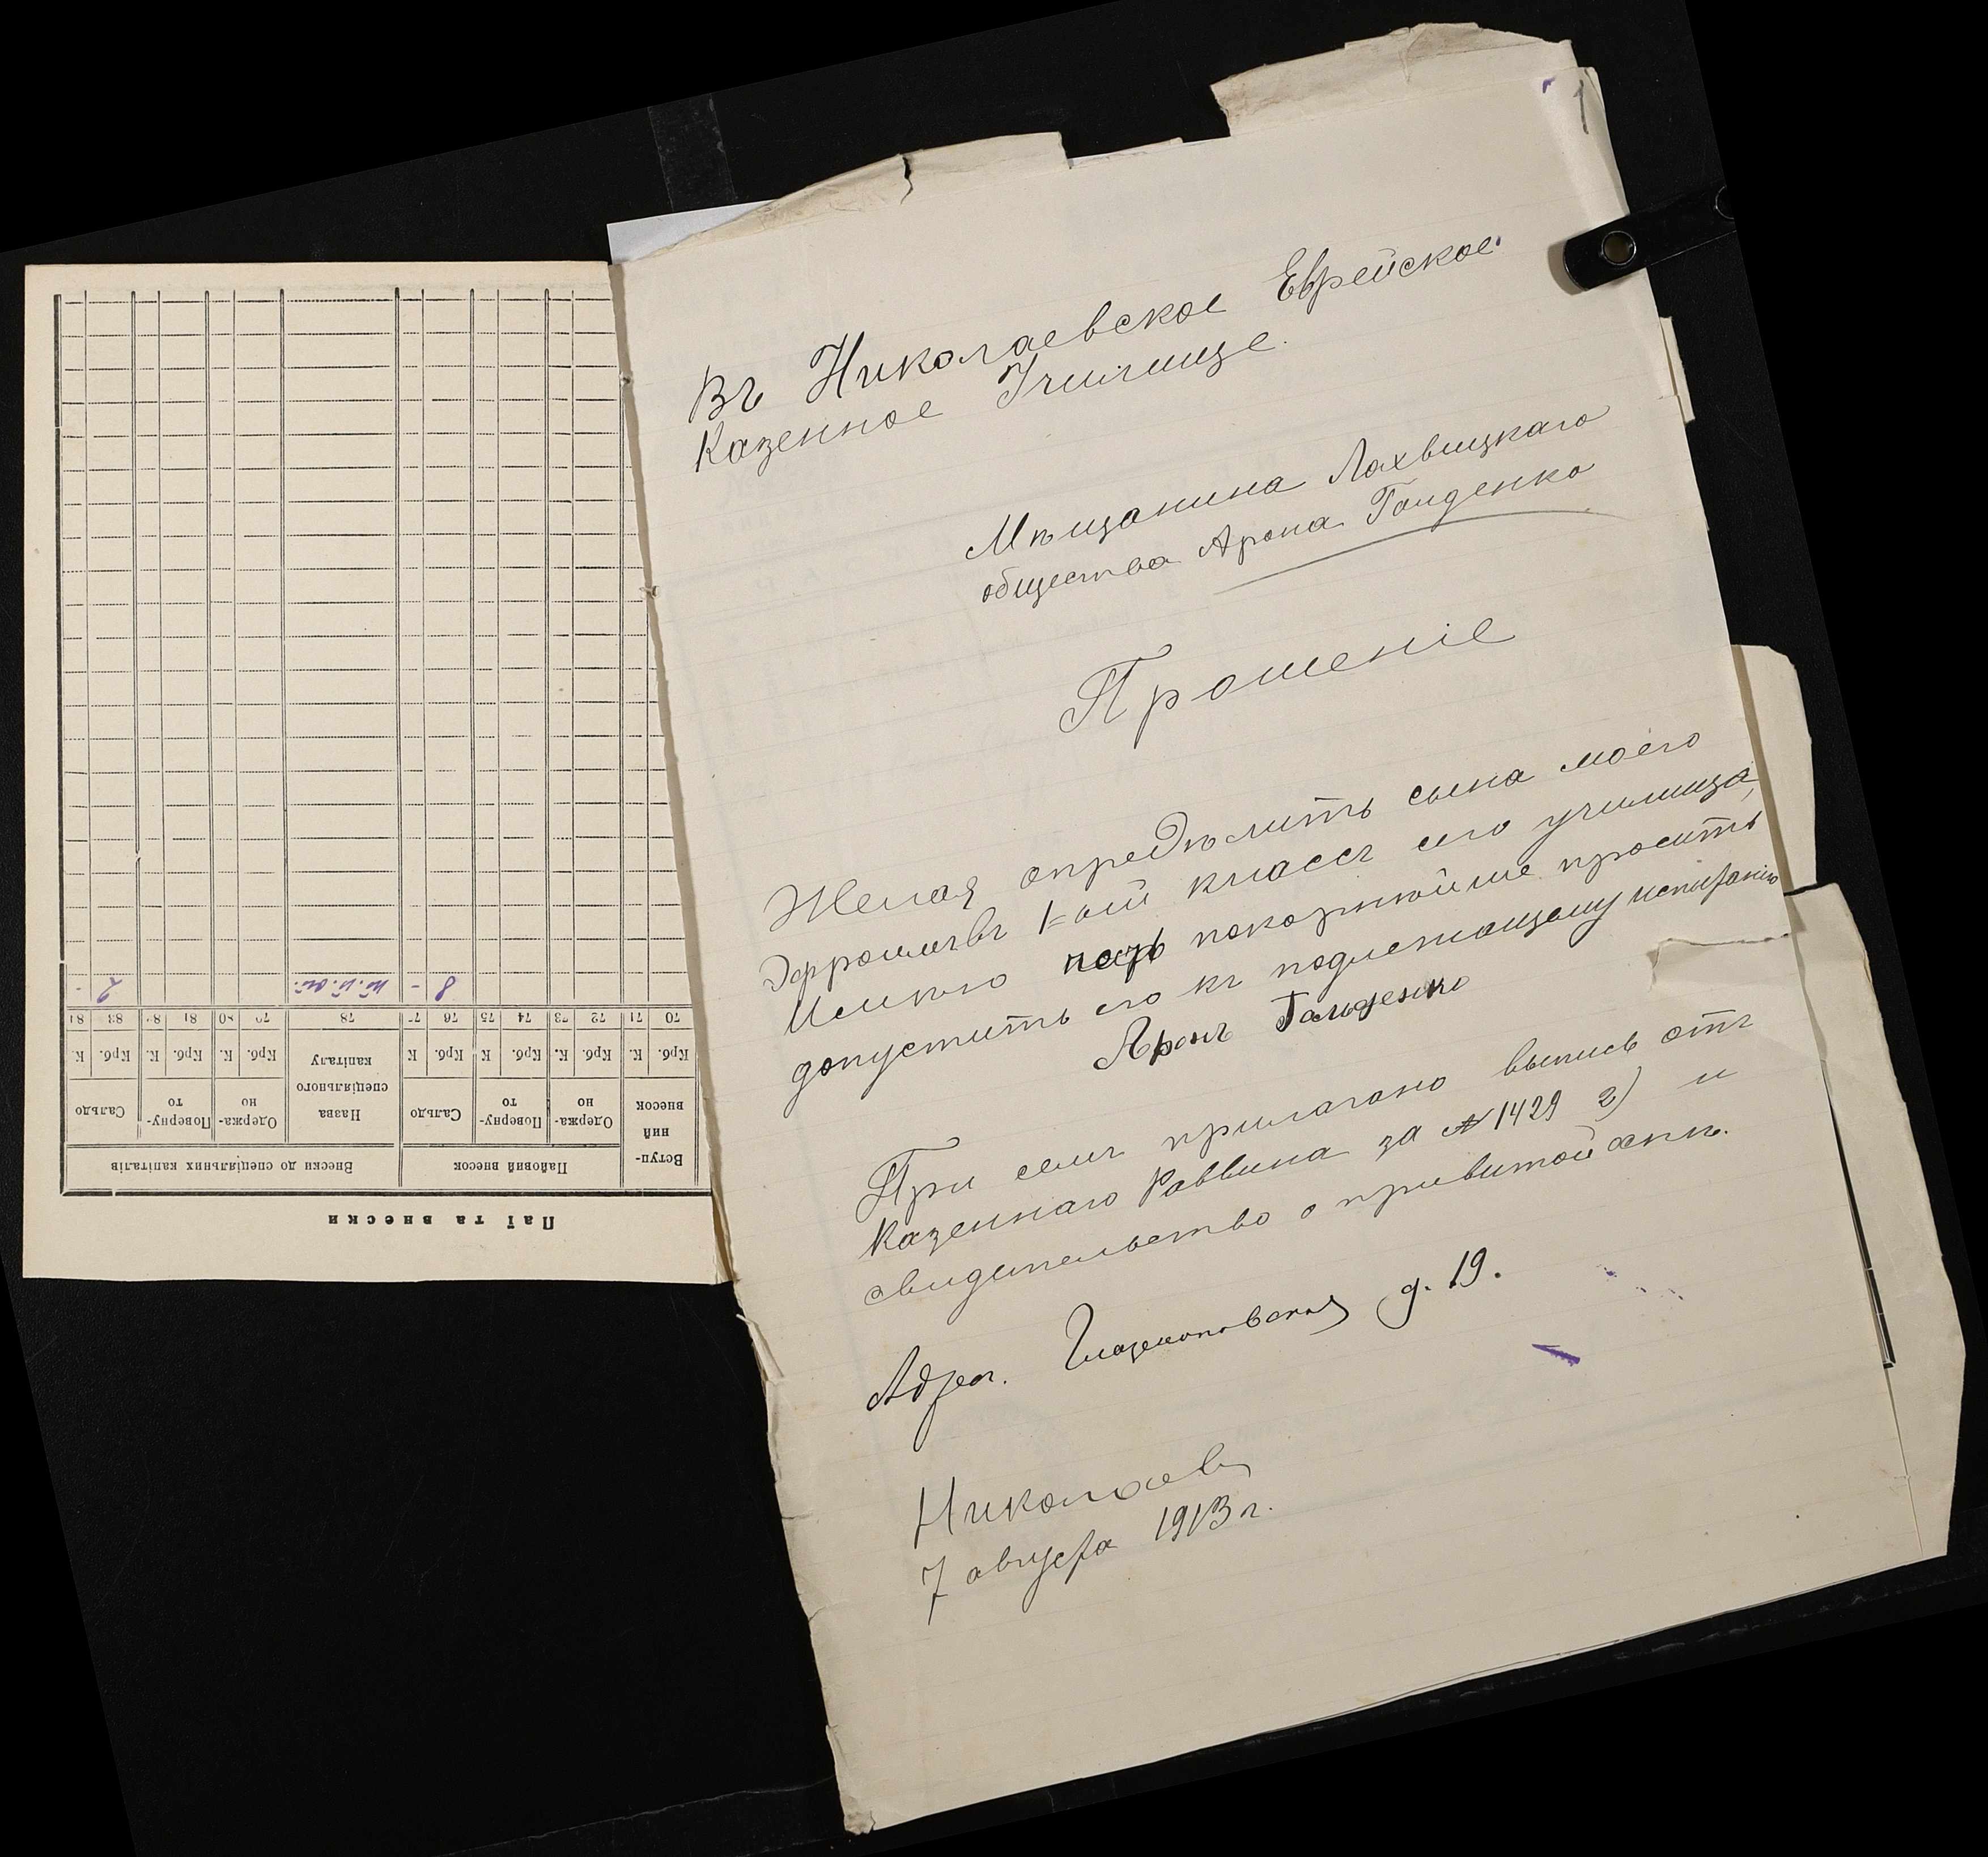 1
Въ Николаевское Еврейское
Казенное Училище.
Мѣщанина Лохвицкаго
общества Арона Голденко
Прошеніе
Желая опредѣлить сына моего
въ 1=ой классъ сего училища,
Имѣю покорнѣйше просить
допустить его къ подлежащему испытанію
Аронъ Гольденко
При семъ прилагаю выпись отъ
Казеннаго Раввина за № 1429 2) и
свидѣтельство о привитой оспѣ.
Адрес. д. 19.
Николаевъ
7 августа 1913 г.
Паї та внески
Вступ-
ний
внесок
Пайовий внесок
Внески до спеціяльних капіталів
Одержа-
но
Поверну-
то
Сальдо
Назва
спеціяльного
капіталу
Одержа-
но
Поверну-
то
Сальдо
Крб. К. Крб. К. Крб. К Крб. К Крб. К. Крб. К. Крб. К
70 71 72 73 74 75 76 78 81 83 84
8 - 2 -